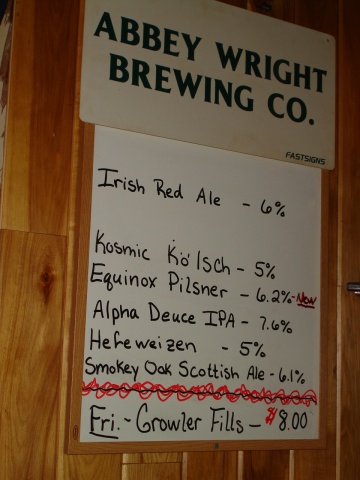 ABBEY WRIGHT
BREWING CO.
FASTSIGNS
Irish Red Ale - 6%
Kosmic Kölsch - 5%
Equinox Pilsner - 6.2% - New
Alpha Deuce IPA - 7.6%
Hefeweizen - 5%
Smokey Oak Scottish Ale - 6.1%
Fri. - Growler Fills - $8.00